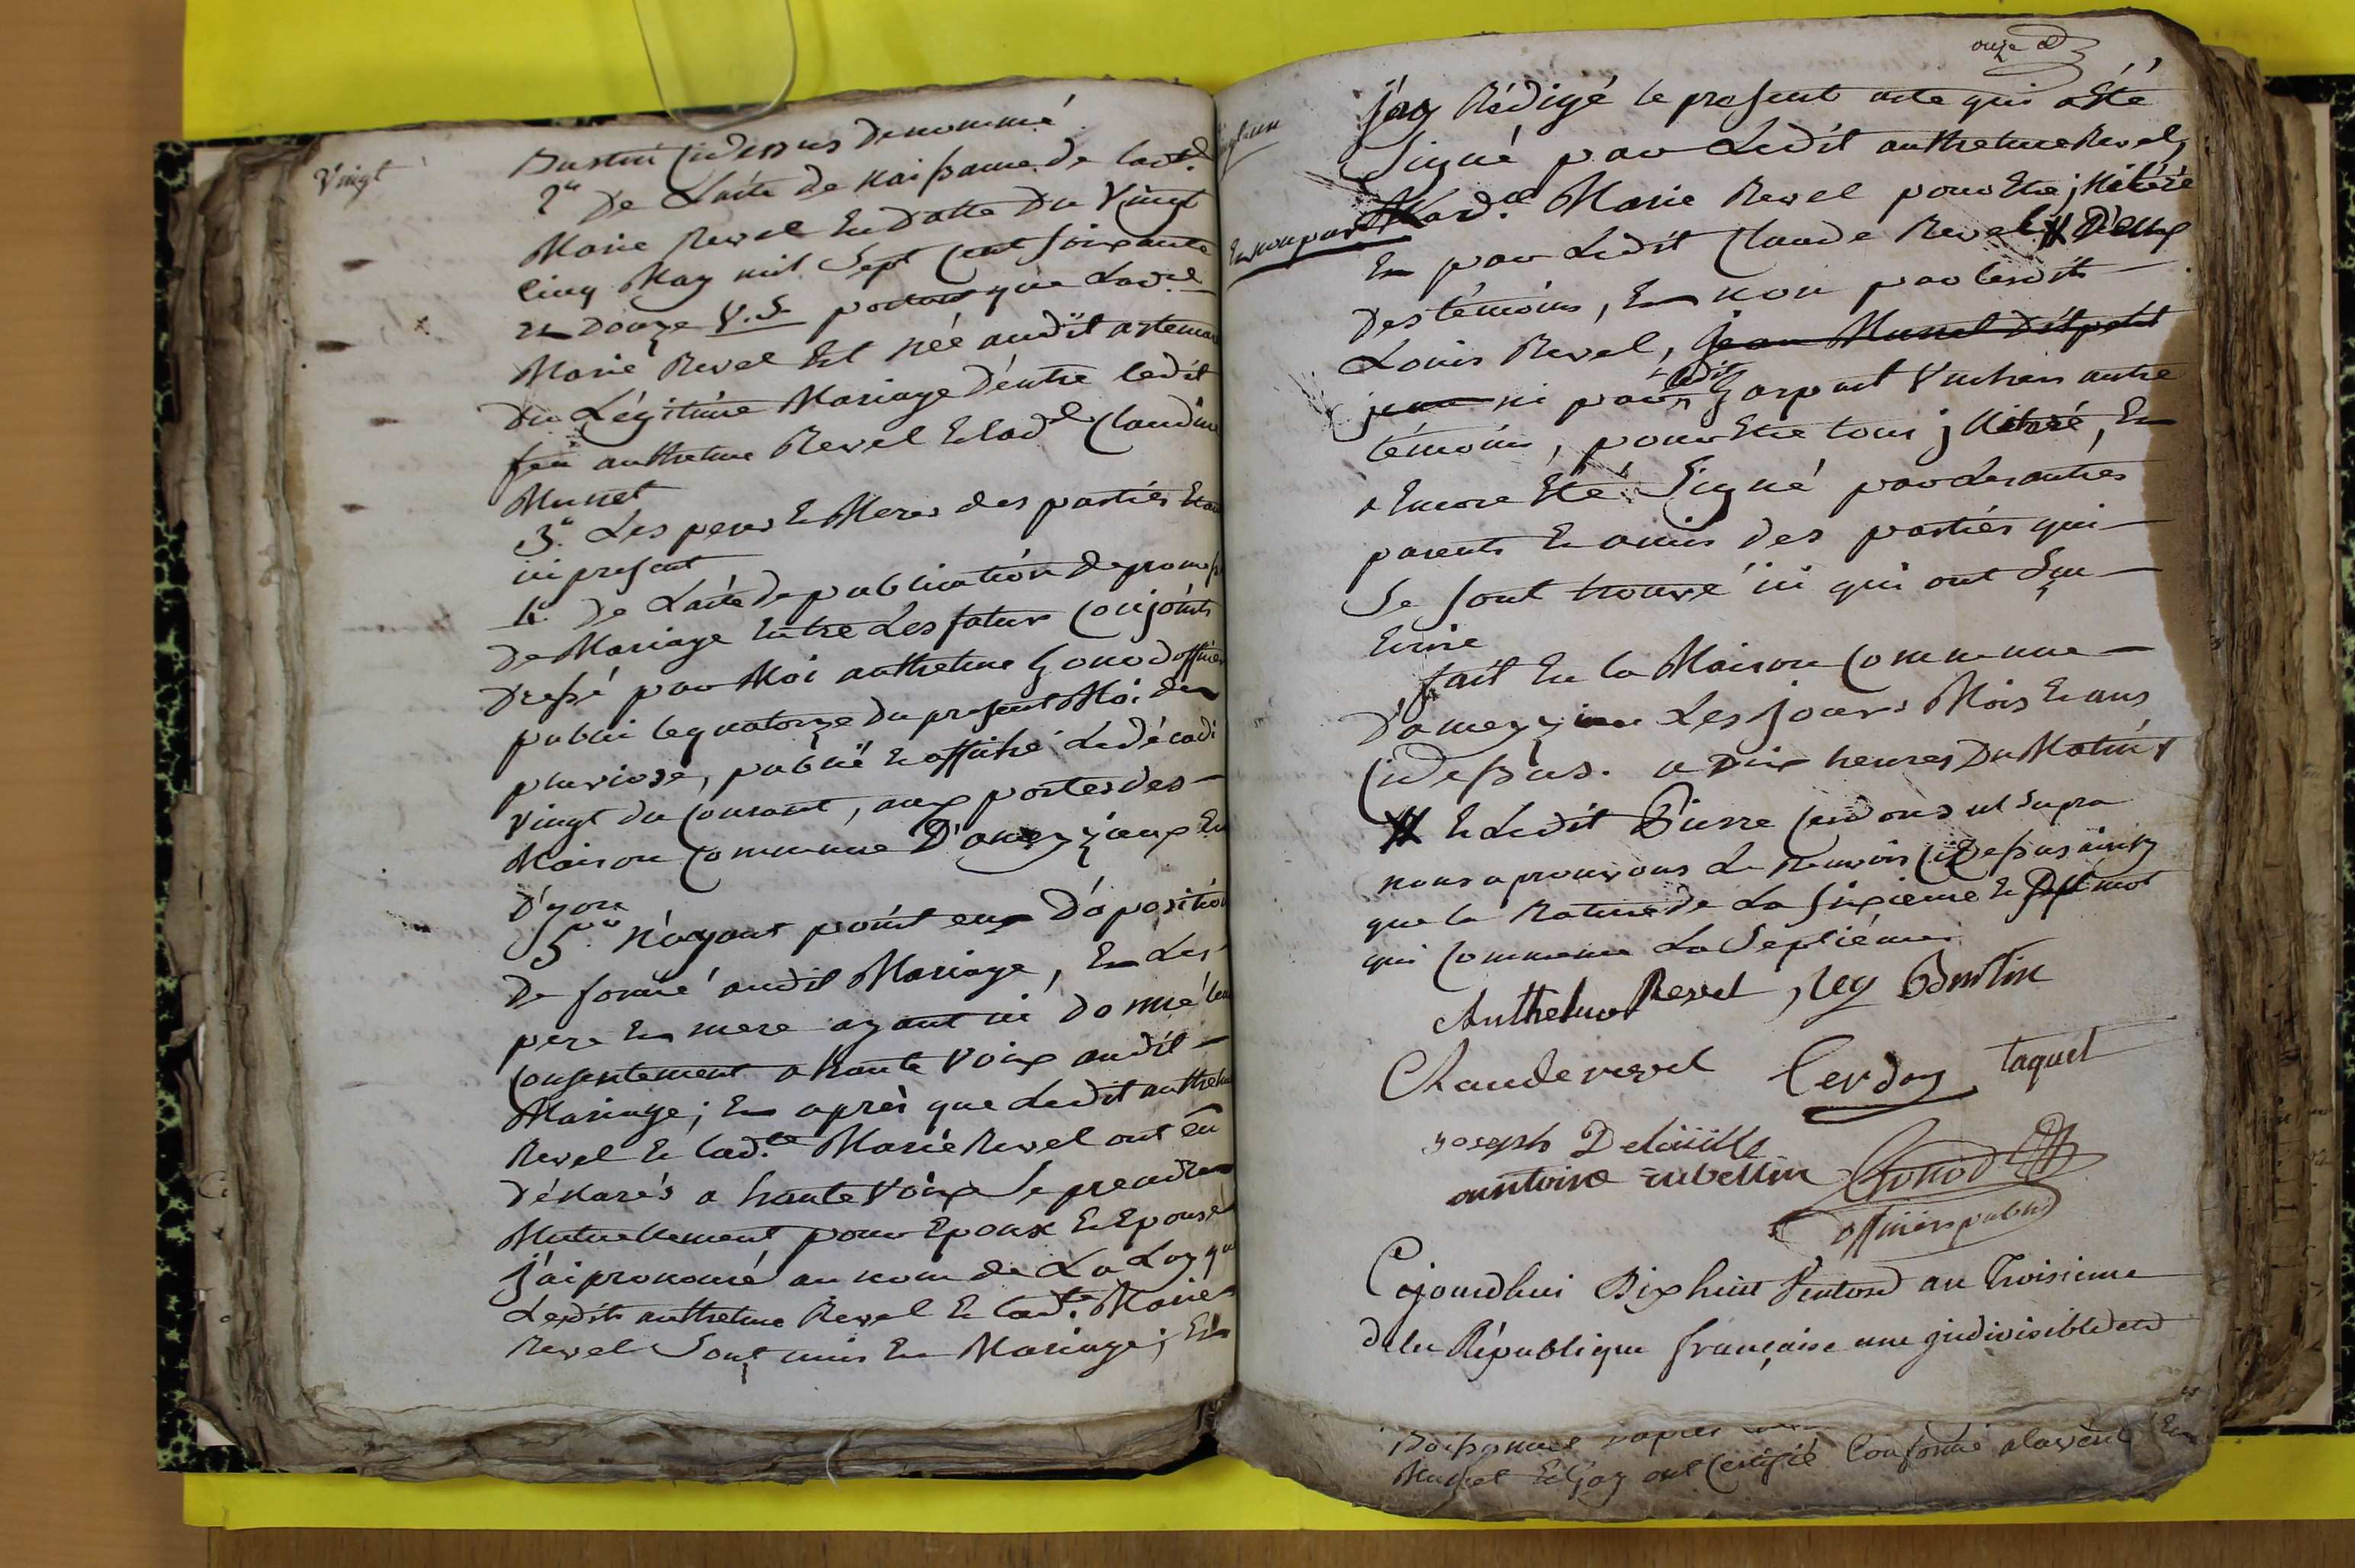 Vingt
Bastin Cidessus denommé
2º De Lacte de naissance de lad.e
Marie Revel En datte du Vingt
Cinq May mil Sept Cent soixante
et douze V.S. portant que Lad.e
Marie Revel Est née audit artemare
du Légitime Mariage d'entre ledit
feu anthelme Revel Et lad.e Claudine
Munet
3.º Les peres Et Meres des partiés Etant
ici présent
4.º De Lacte de publication de promesse
de Mariage Entre Les futur Conjoints
Dressé par Moi anthelme Gonod officier
public le quatorze du présent Moi de
pluviose, publié Et affiché Le décadi
Vingt du Courant, aux portes des
Maison Commune D'ameyzieux Et
D'yon
5º N'ayant point eux D'oposition
De formé audit Mariage, Et Les
pere Et mere ayant ici donné leur
Consentement a haute Voix audit
Mariage; Et après que Ledit anthelme
Revel Et lad.te Marie Revel ont eû
déklarés a haute Voix Se prendre
Mutuellement pour Epoux Et Epouse
j'ai prononcé au nom de La Loy que
Lesdits anthelme Revel Et lad.te Marie
Revel Sont unis En Mariage; Et
onze
j'ay Rédigé le présent acte qui a Eté
Signé par Ledit anthelme Revel,
Et non par Lad.e Marie Revel pour Etre illitéré
Et par Ledit Claude Revel # D'eux
des témoins, Et non par lesdits
Louis Revel, jean Munet dit petit
jean ni par ledit gaspard Vuchen autre
témoins, pour Etre tous illitéré, Et
a Encore Eté Signé par Les autres
parents Et amis des partiés qui
Se sont trouvé ici qui ont Su
Ecrire
fait En la Maison Commune
D'ameyzieu Les jour Mois Et ans
Cidessus. a Dix heures du Matin
# Et Ledit Pierre Cerdons ut supra
nous aprouvons Le renvois Cidessus ainsy
que la Rature de La sixieme Et mot
qui Commence La Septiéme
Anthelme Revel, Ley Bastin
Claude revel Cerdon taquet
joseph
antoine rubellin Gonod
officier public
Cejourdhui Dix huit Ventose an Troisieme
de la République française une indivisible et
Munet Et Gay ont Certifié Conforme a la vérité Et